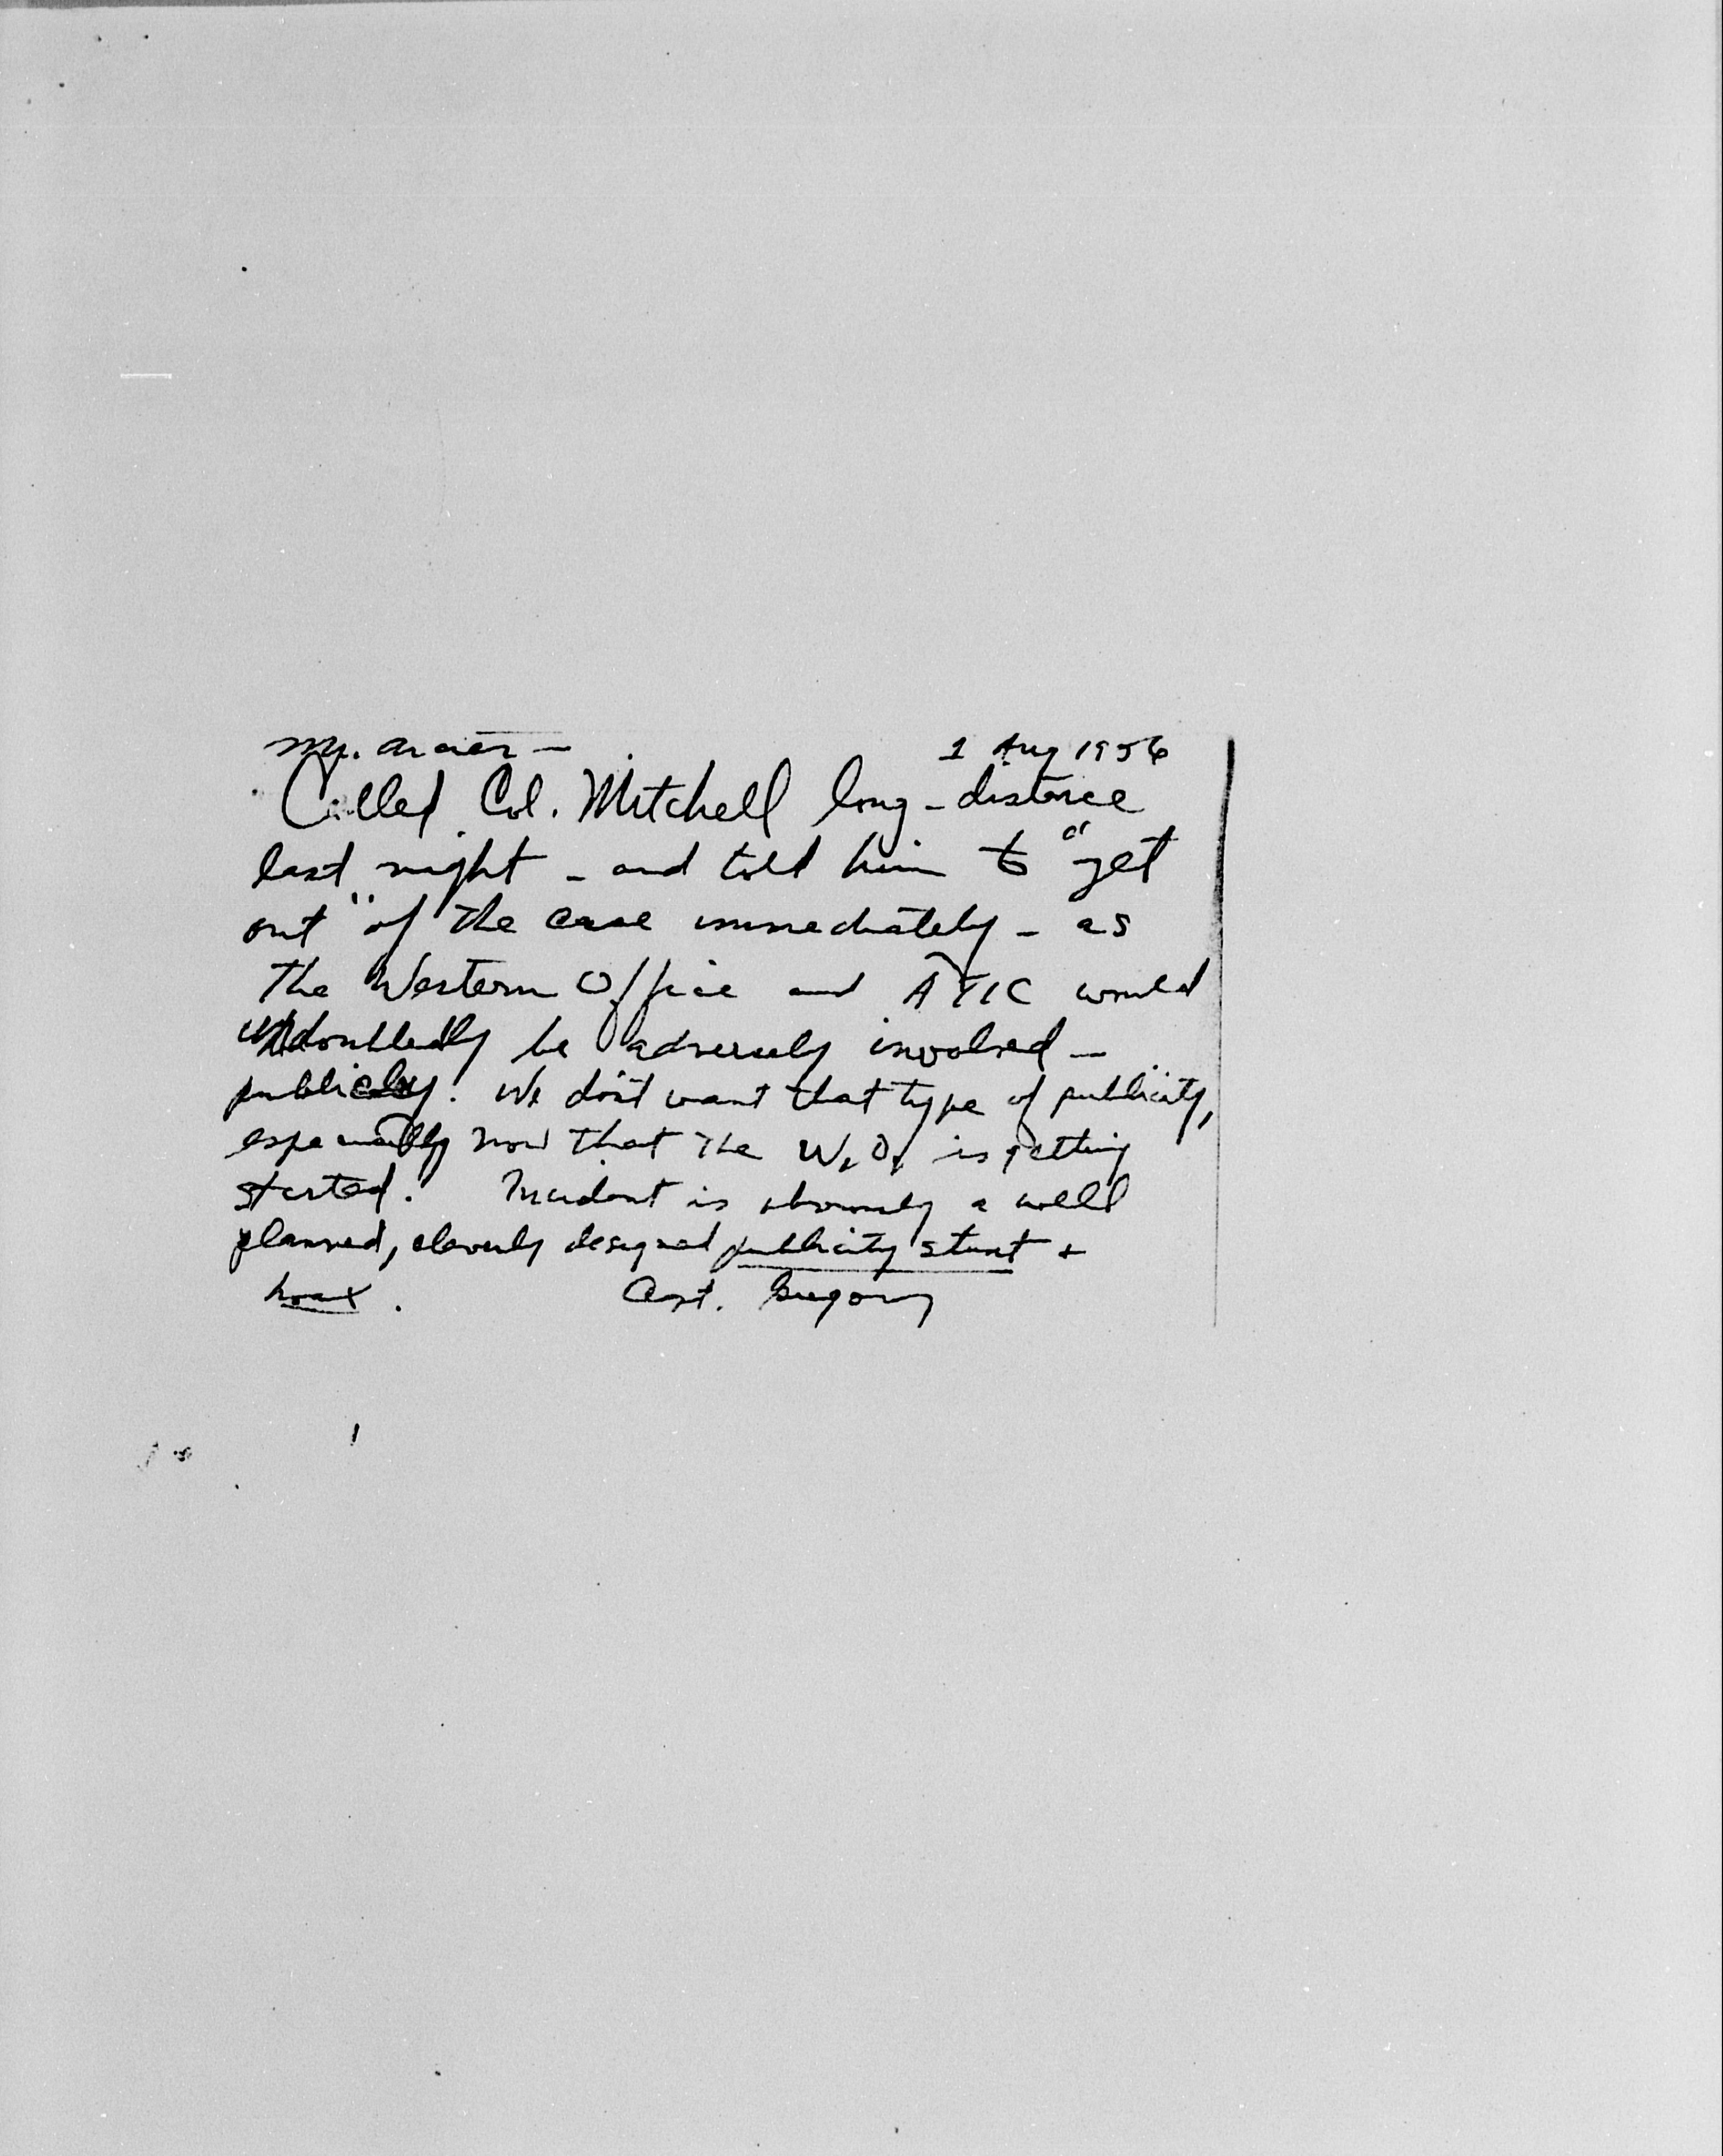 Mr. Arcier — 1 Aug 1956
Called Col. Mitchell long-distance
last night - and told him to "get
out" of the case immediately - as
the Western Office and ATIC would
undoubtedly be adversely involved -
publicly. We don't want that type of publicity,
especially now that the W.O. is getting
started. Incident is obviously a well
planned, cleverly designed publicity stunt +
hoax. Capt. Gregory